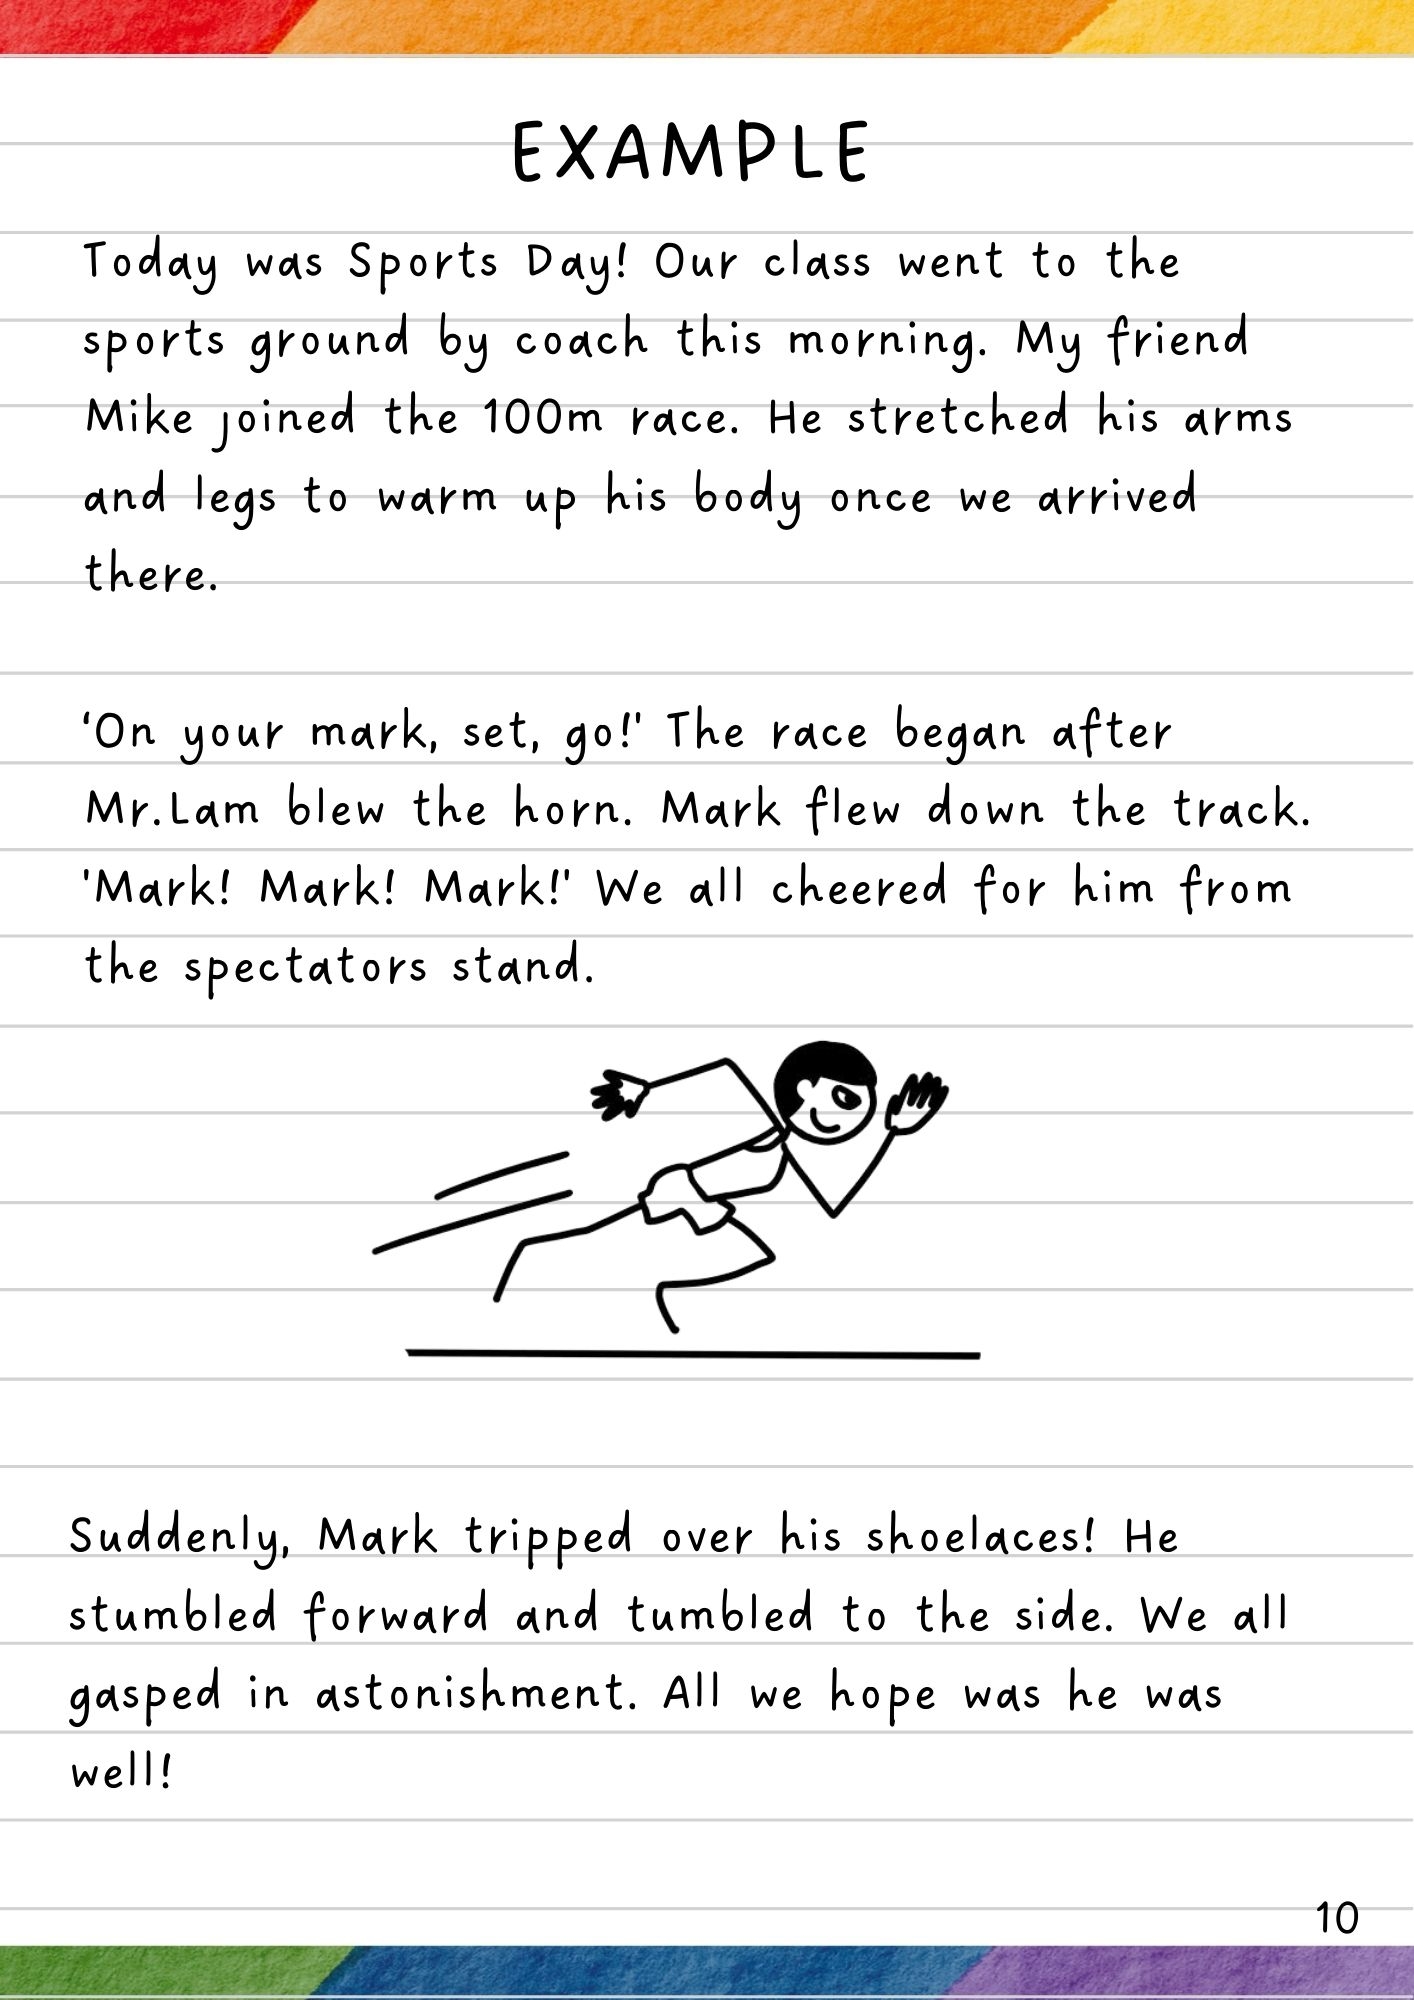 EXAMPLE
Today was Sports Day! Our class went to the
sports ground by coach this morning. My friend
Mike joined the 100m race. He stretched his arms
and legs to warm up his body once we arrived
there.
‘On your mark, set, go!' The race began after
Mr.Lam blew the horn. Mark flew down the track.
'Mark! Mark! Mark!' We all cheered for him from
the spectators stand.
Suddenly, Mark tripped over his shoelaces! He
stumbled forward and tumbled to the side. We all
gasped in astonishment. All we hope was he was
well!
10